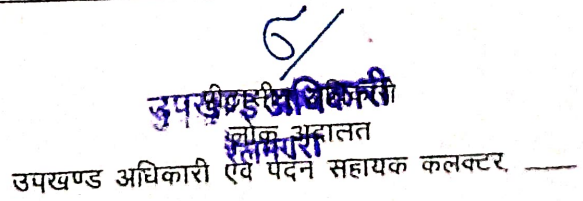 उपखण्ड अधिकारी
पीठासीन अधिकारी
लोक अदालत
रेलमगरा
उपखण्ड अधिकारी एवं पदेन सहायक कलक्टर,